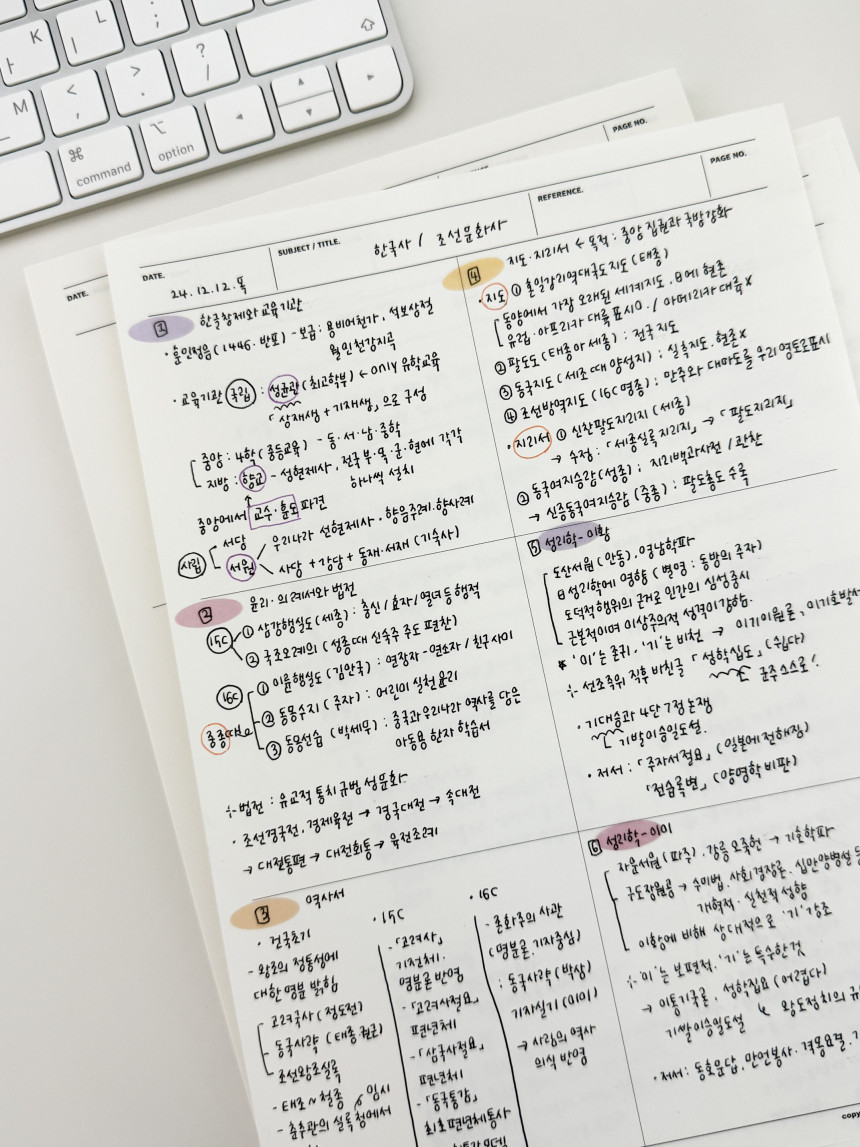 K
L
;
ㅏ
ㅣ
M
ㅡ
<
,
>
.
?
/
⌘
command
⌥
option
DATE.
PAGE NO.
DATE.
24.12.12.목
SUBJECT / TITLE.
한국사 / 조선문화사
REFERENCE.
PAGE NO.
1 한글창제와 교육기관
· 훈민정음 (1446. 반포) - 보급 : 용비어천가, 석보상절
월인천강지곡
· 교육기관 국립 : 성균관 (최고학부) ← only 유학교육
「상재생 + 기재생」으로 구성
중앙 : 4학 (중등교육) - 동·서·남·중학
지방 : 향교 - 성현제사, 전국 부·목·군·현에 각각
하나씩 설치
중앙에서 교수·훈도 파견
사립 서당
서원 우리나라 선현제사, 향음주례, 향사례
사당 + 강당 + 동재·서재 (기숙사)
2 윤리·의례서와 법전
15C ① 삼강행실도 (세종) : 충신/효자/열녀 등 행적
② 국조오례의 (성종때 신숙주 주도 편찬)
16C ① 이륜행실도 (김안국) : 연장자-연소자 / 친구사이
중종때 ② 동몽수지 (주자) : 어린이 실천윤리
③ 동몽선습 (박세무) : 중국과 우리나라 역사를 담은
아동용 한자 학습서
법전 : 유교적 통치규범 성문화
· 조선경국전, 경제육전 → 경국대전 → 속대전
→ 대전통편 → 대전회통 → 육전조례
3 역사서
· 건국초기
- 왕조의 정통성에
대한 명분 밝힘
고려국사 (정도전)
동국사략 (태종 권근)
조선왕조실록
- 태조 ~ 철종
임시
- 춘추관의 실록청에서
· 15C
- 「고려사」
기전체.
명분론 반영
- 「고려사절요」
편년체
- 「삼국사절요」
편년체
- 「동국통감」
최초편년체통사
· 16C
- 존화주의 사관
(명분론, 기자중심)
: 동국사략 (박상)
기자실기 (이이)
→ 사림의 역사
의식 반영
4 지도·지리서 ← 목적 : 중앙집권과 국방강화
· 지도 ① 혼일강리역대국도지도 (태종)
동양에서 가장 오래된 세계지도. 日에 현존
유럽·아프리카 대륙 표시O. / 아메리카 대륙X
② 팔도도 (태종 아 세종) : 전국지도
③ 동국지도 (세조때 양성지) : 실측지도. 현존X
④ 조선방역지도 (16C 명종) : 만주와 대마도를 우리영토로표시
· 지리서 ① 신찬팔도지리지 (세종)
→ 수정 : 「세종실록지리지」 → 「팔도지리지」
② 동국여지승람 (성종) : 지리백과사전 / 관찬
→ 신증동국여지승람 (중종) : 팔도총도 수록
5 성리학 - 이황
도산서원 (안동). 영남학파
日 성리학에 영향 (별명 : 동방의 주자)
도덕적행위의 근거로 인간의 심성중시
근본적이며 이상주의적 성격이 강함.
* '이'는 존귀, '기'는 비천 → 이기이원론, 이기호발
선조즉위 직후 바친글 「성학십도」 (쉽다)
군주 스스로!
· 기대승과 4단 7정 논쟁
기발이승일도설.
· 저서 : 「주자서절요」 (일본에 전해짐)
「전습록변」 (양명학 비판)
6 성리학 - 이이
자운서원 (파주). 강릉 오죽헌 → 기호학파
구도장원공 → 수미법, 사회경장론, 십만양병설 등
개혁적·실천적 성향
이황에 비해 상대적으로 '기' 강조
'이'는 보편적, '기'는 특수한 것
→ 이통기국론, 성학집요 (어렵다)
기발이승일도설 왕도정치의
· 저서 : 동호문답, 만언봉사, 격몽요결,
copy